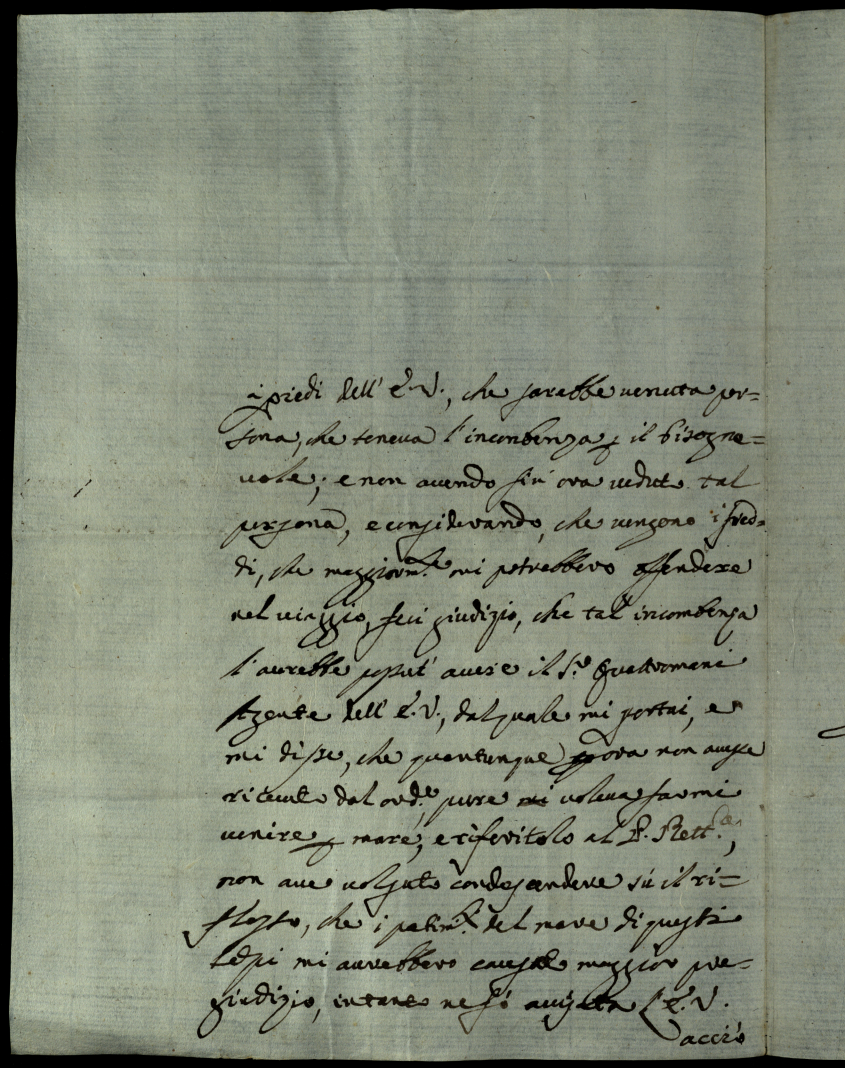 a piedi dell' E. V., che sarebbe venuta per=
sona, che teneva l'incombenza p il bisogne=
vole; e non avendo sin' ora veduto tal
persona, e considerando, che vengono i fred=
di, che maggiorm.te mi potrebbero offendere
nel viaggio, feci giudizio, che tal' incombenza
l'avrebbe possut' avere il S.r Quattromani
Agente dell' E. V., dal quale mi portai, e
mi disse, che quantunque ora non avesse
ricevuto dal ord.e pure voleva farmi
venire p mare, e riferitolo al P. Rett.re,
non ave volsuto condescendere sù il ri=
flesso, che i patim.ti del mare di questi
tempi mi avrebbero causato maggior pre=
giudizio, intanto ne fò avisata l'E. V.
acciò